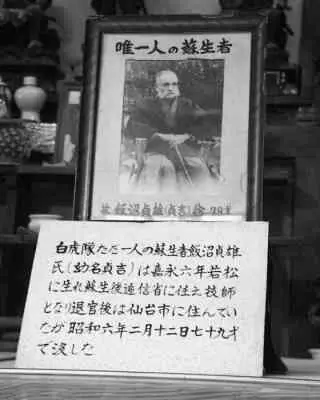 唯一人の蘇生者
飯沼貞雄(貞吉) 79
白虎隊たゞ一人の蘇生者飯沼貞雄
氏(幼名貞吉)は嘉永六年若松
に生れ蘇生後逓信省に仕え技師
となり退官後は仙台市に住んでい
たが昭和六年二月十二日七十九才
で没した